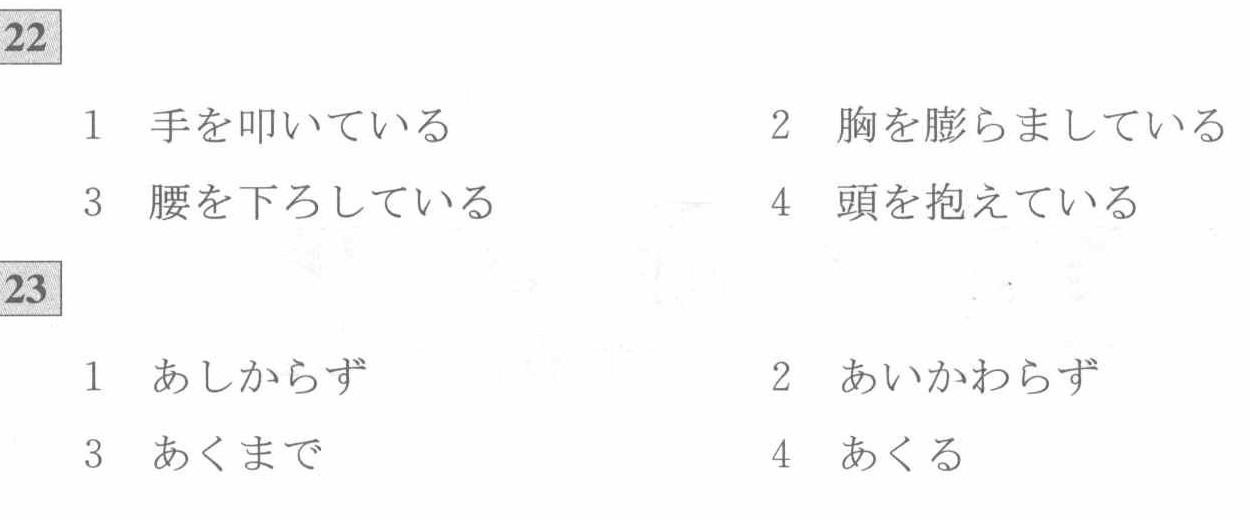 22
1 手を叩いている 2 胸を膨らましている
3 腰を下ろしている 4 頭を抱えている
23
1 あしからず 2 あいかわらず
3 あくまで 4 あくる